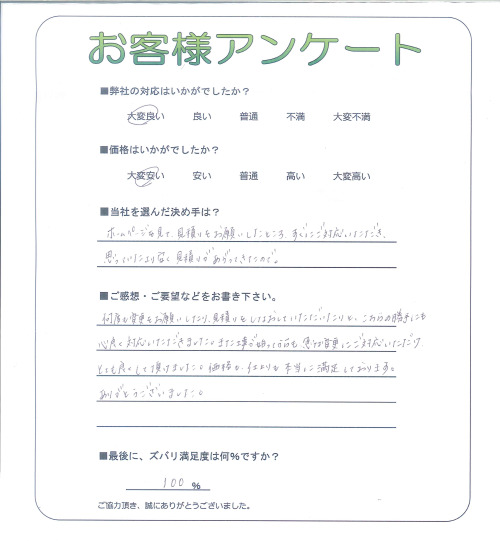 お客様アンケート
■弊社の対応はいかがでしたか？
大変良い 良い 普通 不満 大変不満
■価格はいかがでしたか？
大変安い 安い 普通 高い 大変高い
■当社を選んだ決め手は？
ホームページを見て、見積りをお願いしたところ、すぐにご対応いただき、
思っていたより安く見積りがあがってきたので。
■ご感想・ご要望などをお書き下さい。
何度も変更をお願いしたり、見積りをしなおしていただいたりと、こちらの勝手にも
心良く対応いただきました。また工事が始まってからも急な変更にご対応いただけ
とても良くして頂けました。価格も、仕上りも本当に満足しております。
ありがとうございました。
■最後に、ズバリ満足度は何%ですか？
100 %
ご協力頂き、誠にありがとうございました。